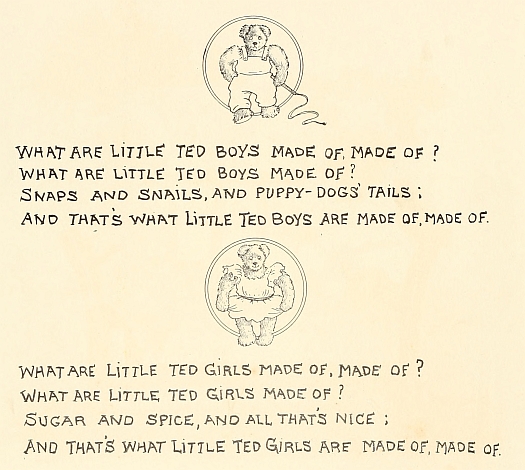 WHAT ARE LITTLE TED BOYS MADE OF, MADE OF ?
WHAT ARE LITTLE TED BOYS MADE OF ?
SNAPS AND SNAILS, AND PUPPY-DOGS' TAILS ;
AND THAT'S WHAT LITTLE TED BOYS ARE MADE OF, MADE OF.
WHAT ARE LITTLE TED GIRLS MADE OF, MADE OF ?
WHAT ARE LITTLE TED GIRLS MADE OF ?
SUGAR AND SPICE, AND ALL THAT'S NICE ;
AND THAT'S WHAT LITTLE TED GIRLS ARE MADE OF, MADE OF.